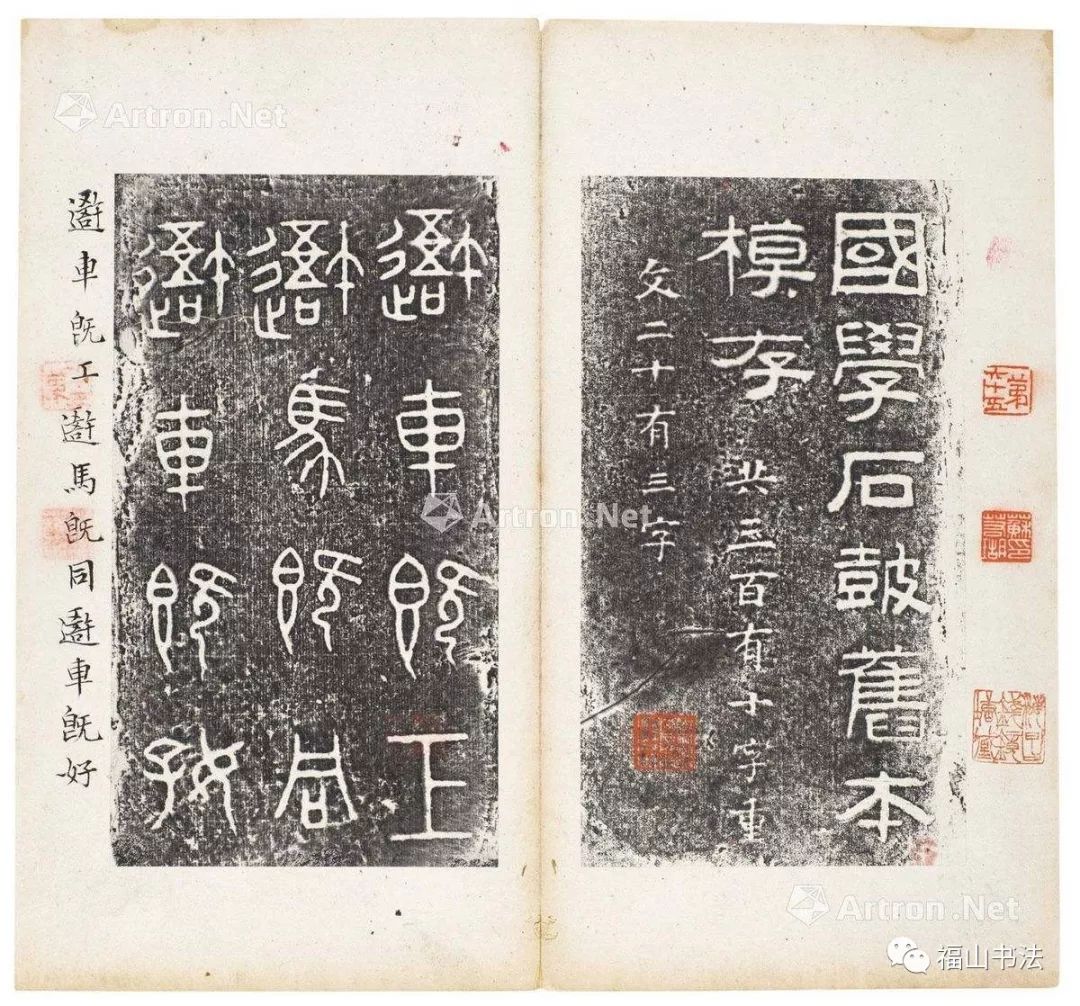 國學石鼓舊本
模存 共三百有十字重
文二十有三字
避車既工
避馬既同
避車既好
避車既工避馬既同避車既好
第六十五
Artron.Net
Artron.Net
Artron.Net
福山书法